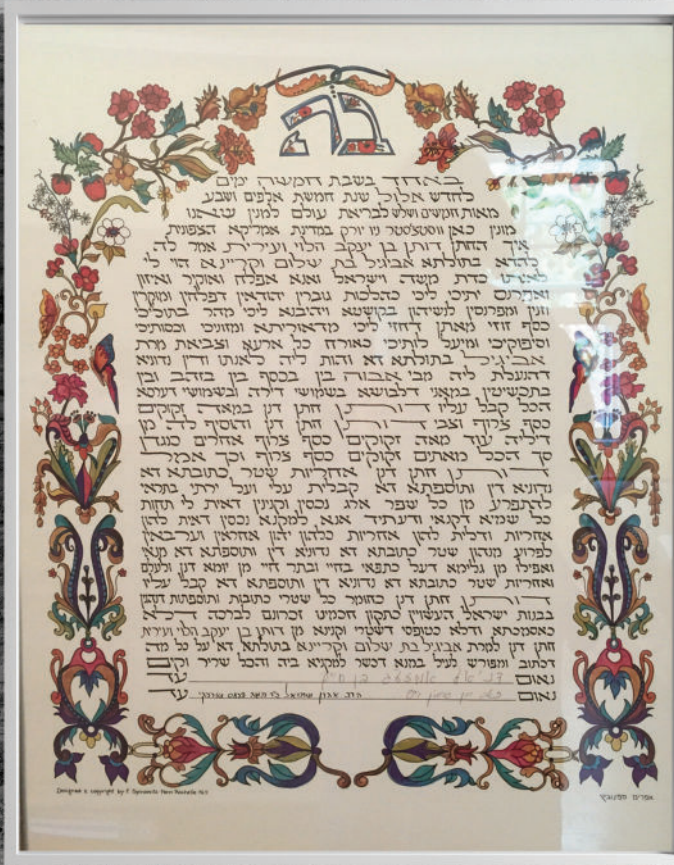 בה
באחד בשבת חמשה ימים
לחדש אלול שנת חמשת אלפים ושבע
מאות וחמשים ושלש לבריאת עולם למנין שאנו
מונין כאן ווסטצ'סטר ניו יורק במדינת אמריקא הצפונית
איך החתן דותן בן יעקב הלוי ועירית אמר לה
להדא בתולתא אביגיל בת שלום וקריינא הוי לי
לאנתו כדת משה וישראל ואנא אפלח ואוקיר ואיזון
ואפרנס יתיכי ליכי כהלכות גוברין יהודאין דפלחין ומוקרין
וזנין ומפרנסין לנשיהון בקושטא ויהיבנא ליכי מהר בתוליכי
כסף זוזי מאתן דחזי ליכי מדאוריתא ומזוניכי וכסותיכי
וסיפוקיכי ומיעל לותיכי כאורח כל ארעא וצביאת מרת
אביגיל בתולתא דא והות ליה לאנתו ודין נדוניא
דהנעלת ליה מבי אבוה בין בכסף בין בזהב ובין
בתכשיטין במאני דלבושא בשמושי דירה ובשמושי דערסא
הכל קבל עליו דותן חתן דנן במאה זקוקים
כסף צרוף וצבי דותן חתן דנן והוסיף לה מן
דיליה עוד מאה זקוקים כסף צרוף אחרים כנגדן
סך הכל מאתים זקוקים כסף צרוף וכך אמר
דותן חתן דנן אחריות שטר כתובתא דא
נדוניא דין ותוספתא דא קבלית עלי ועל ירתי בתראי
להתפרע מן כל שפר ארג נכסין וקנינין דאית לי תחות
כל שמיא דקנאי ודעתיד אנא למקנא נכסין דאית להון
אחריות ודלית להון אחריות כלהון יהון אחראין וערבאין
לפרוע מנהון שטר כתובתא דא נדוניא דין ותוספתא דא מנאי
ואפילו מן גלימא דעל כתפאי בחיי ובתר חיי מן יומא דנן ולעלם
ואחריות שטר כתובתא דא נדוניא דין ותוספתא דא קבל עליו
דותן חתן דנן כחומר כל שטרי כתובות ותוספתות דנהגין
בבנות ישראל העשויין כתקון חכמינו זכרונם לברכה דלא
כאסמכתא ודלא כטופסי דשטרי וקנינא מן דותן בן יעקב הלוי ועירית
חתן דנן למרת אביגיל בת שלום וקריינא בתולתא דא על כל מה
דכתוב ומפורש לעיל במנא דכשר למקניא ביה והכל שריר וקים
נאום עד
נאום עד
Designed & copyright by F. New Rochelle N.Y.
אפרים